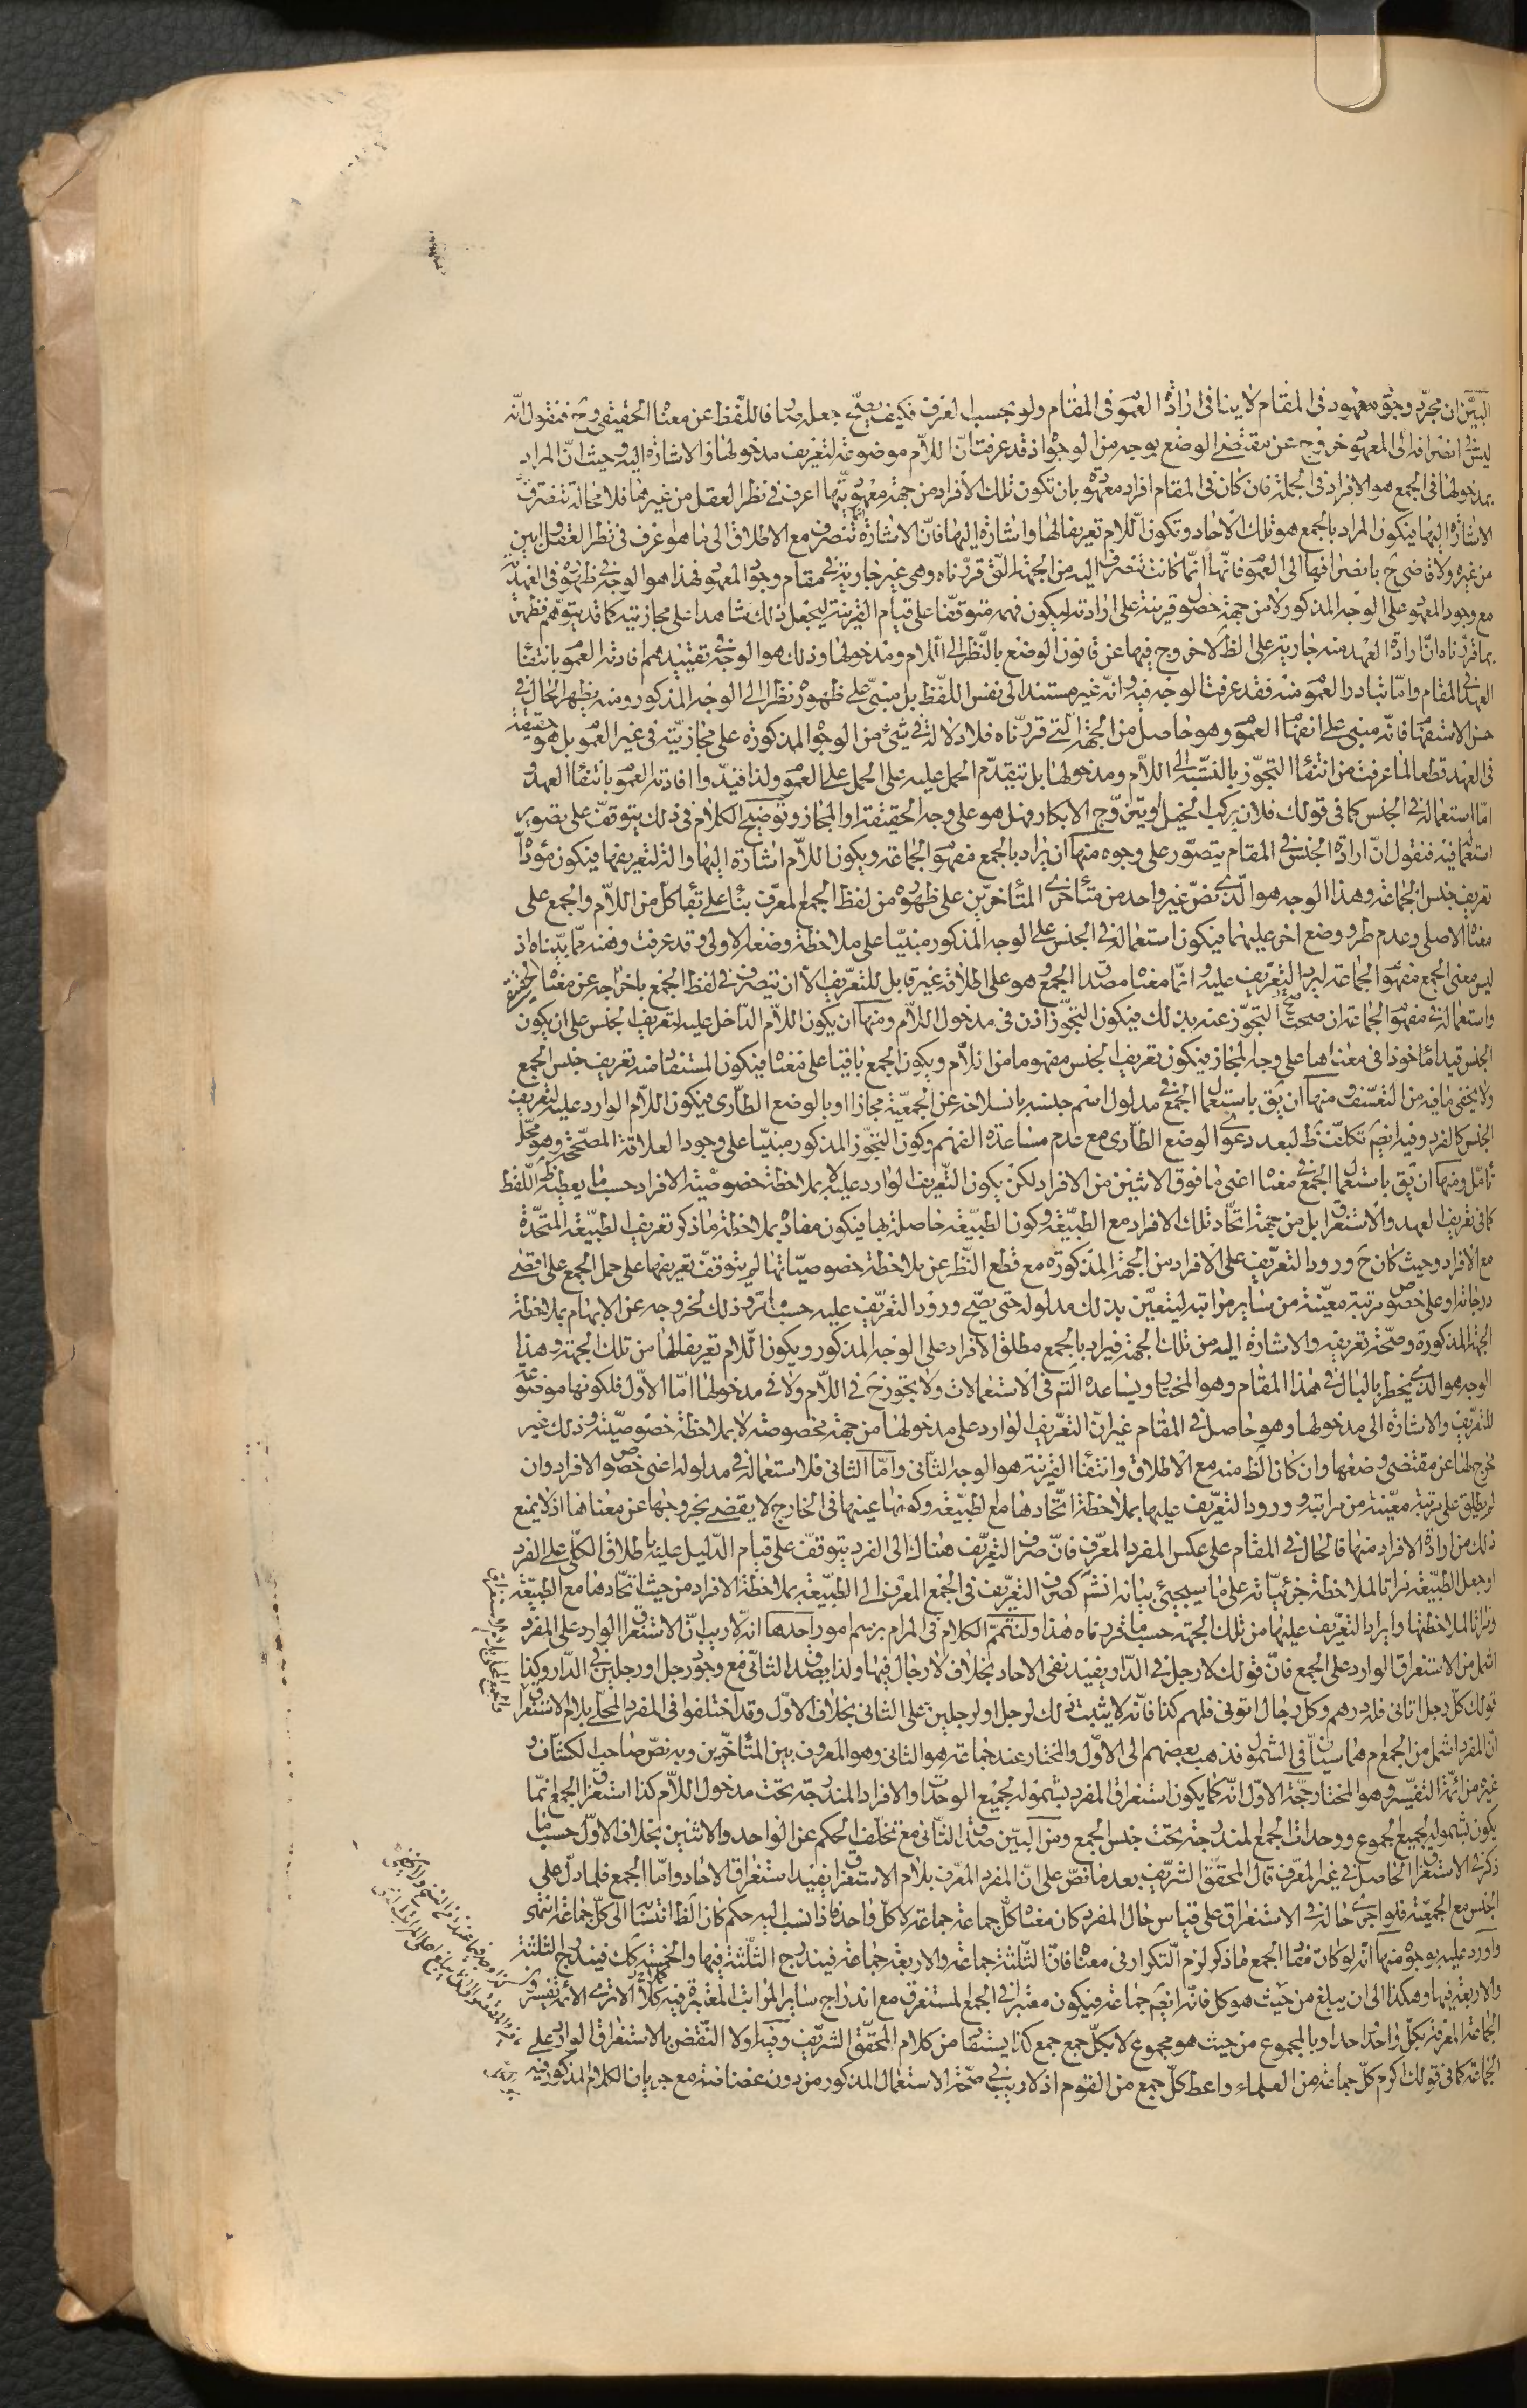 البيّن ان مجرّد وجو معهود فى المقام لا ينافى ارادة العمو فى المقام ولو بحسب العرف فكيف يصحّ جعله صارفا للّفظ عن معناه الحقيقى وح فنقول انّه
ليس فى انصرافه الى المعهو خروج عن مقتضى الوضع بوجه من الوجوه اذ قد عرفت انّ اللّام موضوعة لتعريف مدخولها والاشارة اليه وحيث انّ المراد
بمدخولها فى الجمع هو الافراد فى الجملة فان كان فى المقام افراد معهوة بان تكون تلك الافراد من جهة معهويّتها اعرف فى نظر العقل من غيرها فلا محالة تنصرف
الاشارة اليها فيكون المراد بالجمع هو تلك الاحاد وتكون اللّام تعريفا لها واشارة اليها فانّ الاشارة تنصرف مع الاطلاق الى ما هو اعرف فى نظر العقل وابين
من غيره ولا قاضى ح بانصرافها الى العمو فانّها انّما كانت تنصرف اليه من الجهة الّتى قرّرناه وهى غير جارية فى مقام وجو المعهو فهذا هو الوجه فى ظهوره فى العهد
مع وجود المعهو على الوجه المذكور لا من جهة حصو قرينة على ارادته ليكون فهمه متوقّفا على قيام القرينة ليجعل ذلك شاهدا على مجازيته كما قد يتوهّم فظهر
بما قرّرناه انّ ارادة العهد منه جارية على الظ لا خروج فيها عن قانون الوضع بالنّظر الى اللّام ومدخولها وذلك هو الوجه فى تقييدهم افادته العمو بانتفا
العهد فى المقام وامّا تبادر العمو منه فقد عرفت الوجه فيه وانّه غير مستند الى نفس اللّفظ بل مبنى على ظهوره نظرا الى الوجه المذكور ومنه يظهر الحال فى
حسن الاستفها فانّه مبنى على انفها العمو وهو حاصل من الجهة الّتى قرّرناه فلا دلالة فى شئ من الوجوه المذكورة على مجازيّته فى غير العمو بل هو حقيقة
فى العهد قطعا لما عرفت من انتفا التجوّز بالنّسبة الى اللّام ومدخولها بل يتقدّم الحمل عليه على الحمل على العمو ولذا قيّدوا افادته العمو بانتفا العهد و
امّا استعماله فى الجنس كما فى قولك فلان يركب الخيل او يتزوّج الابكار فهل هو على وجه الحقيقة او المجاز وتوضيح الكلام فى ذلك يتوقّف على تصوير
استعما فيه فنقول انّ ارادة الجنس فى المقام يتصوّر على وجوه منها ان يراد بالجمع مفهو الجماعة ويكون اللّام اشارة اليها والة لتعريفها فيكون مؤدّاه
تعريف جنس الجماعة وهذا الوجه هو الّذى نصّ غير واحد من متأخرى المتأخرين على ظهوره من لفظ الجمع المعرّف بنا على بقا كلّ من اللّام والجمع على
معناه الاصلى وعدم طرو وضع اخر عليهما فيكون استعماله فى الجنس على الوجه المذكور مبنيّا على ملاحظة وضعه الاولى وقد عرفت وهنه ممّا بيّناه اذ
ليس معنى الجمع مفهو الجماعة ليرد التعريف عليه وانّما معناه مصدا الجمع وهو على اطلاقه غير قابل للتعريف الّا ان يتصرف فى لفظ الجمع باخراجه عن معناه الحقيقى
واستعماله فى مفهو الجماعة ان صححنا التجوّز عنه بذلك فيكون التجوّز اذن فى مدخول اللّام ومنها ان يكون اللّام الدّاخل عليه لتعريف الجنس على ان يكون
الجنس قيدا ماخوذا فى معناها على وجه المجاز فيكون تعريف الجنس مفهوما من اللّام ويكون الجمع باقيا على معناه فيكون المستفا منه تعريف جنس الجمع
ولا يخفى ما فيه من التعسّف ومنها ان يق باستعما الجمع فى مدلول اسم جنسه بانسلاخه عن الجمعيّة مجازا او بالوضع الطّارى فيكون اللّام الوارد عليه لتعريف
الجنس كالمفرد وفيه ايضم تكلّف ظ لبعد دعوى الوضع الطّارى مع عدم مساعدة الفهم وكون التجوّز المذكور مبنيّا على وجود العلاقة المصحّحة وهو محلّ
تامّل ومنها ان يق باستعما الجمع فى معناه اعنى ما فوق الاثنين من الافراد لكن يكون التّعريف الوارد عليه لا بملاحظة خصوصيّة الافراد حسب ما يعطيه ظ اللّفظ
كما فى تعريف العهد والاستغرا بل من جهة اتّحاد تلك الافراد مع الطبيعة وكون الطبيعة حاصلة بها فيكون مفاده بملاحظة ما ذكر تعريف الطبيعة المتّحدة
مع الافراد وحيث كان ح ورود التعريف على الافراد من الجهة المذكورة مع قطع النّظر عن ملاحظة خصوصيّاتها لم يتوقّف تعريفها على حمل الجمع على اقصى
درجاته او على خصو مرتبة معيّنة من ساير مراتبه ليتعيّن بذلك مدلوله حتى يصحّ ورود التعريف عليه حسب ما مرّ وذلك لخروجه عن الابهام بملاحظة
الجهة المذكورة وصحّة تعريفه والاشارة اليه من تلك الجهة فيراد بالجمع مطلق الافراد على الوجه المذكور ويكون اللّام تعريفا لها من تلك الجهة وهذا
الوجه هو الذى يخطر بالبال فى هذا المقام وهو المختار ويساعده التّم فى الاستعمالات ولا تجوّز ح فى اللّام ولا فى مدخولها امّا الاوّل فلكونها موضو
للتعريف والاشارة الى مدخولها وهو حاصل فى المقام غير انّ التعريف الوارد على مدخولها من جهة مخصوصة لا بملاحظة خصوصيّته وذلك غير
مخرج لها عن مقتضى وضعها وان كان الظ منه مع الاطلاق وانتفا القرينة هو الوجه الثّانى وامّا الثانى فلاستعماله فى مدلوله اعنى خصو الافراد وان
لم يطلق على مرتبة معيّنة من مراتبه وورود التّعريف عليها بملاحظة اتّحادها مع الطبيعة وكونها عينها فى الخارج لا يقضى بخروجها عن معناها اذ لا يمنع
ذلك من ارادة الافراد منها فالحال فى المقام على عكس المفرد المعرّف فانّ صرف التعريف هناك الى الفرد يتوقف على قيام الدّليل عليه باطلاق الكلّى على الفرد
او جعل الطبيعة مراتا لملاحظة جزئيّاته على ما سيجئ بيانه انش كصرف التعريف فى الجمع المعرّف الى الطبيعة بملاحظة الافراد من حيث اتّحادها مع الطبيعة
ومراتا لملاحظتها وايراد التعريف عليها من تلك الجهة حسب ما قررناه هذا ولنتمّم الكلام فى المرام برسم امور احدها انّه لا ريب انّ الاستغرا الوارد على المفرد
اشمل من الاستغراق الوارد على الجمع فانّ قولك لا رجل فى الدّار يفيد نفى الاحاد بخلاف لا رجال فيها ولذا يصدق الثّانى مع وجود رجل او رجلين فى الدّار وكذا
قولك كلّ رجل اتانى فله درهم وكلّ رجال اتونى فلهم كذا فانّه لا يثبت ذلك لرجل او لرجلين على الثانى بخلاف الاوّل وقد اختلفوا فى المفرد المحلّى بلام الاستغرا
انّ المفرد اشمل من الجمع ام هما سيّان فى الشمول فذهب بعضهم الى الاوّل والمختار عند جماعة هو الثانى وهو المعروف بين المتأخرين وبه نصّ صاحب الكشّاف و
غيره من ائمة التفسير وهو المختار حجّة الاوّل انّه كما يكون استغراق المفرد بشموله لجميع الوحدات والافراد المندرجة تحت مدخول اللّام كذا استغرا الجمع انّما
يكون بشموله لجميع الجموع ووحدات الجمع المندرجة تحت جنس الجمع ومن البيّن صد الثّانى مع تخلّف الحكم عن الواحد والاثنين بخلاف الاوّل حسب ما
ذكر فى الاستغرا الحاصل فى غير المعرّف قال المحقّق الشريف بعد ما نصّ على انّ المفرد المعرّف بلام الاستغرا يفيد استغراق الاحاد وامّا الجمع فلما دلّ على
الجنس مع الجمعية فلو اجرى حاله فى الاستغراق على قياس حال المفرد كان معناه كلّ جماعة جماعة لا كلّ واحد فاذا نسب اليه حكم كان الظ انتسا الى كلّ جماعة انتهى
واورد عليه بوجوه منها انّه لو كان مفا الجمع ما ذكر لزم التّكرار فى معناه فانّ الثّلثة جماعة والاربعة جماعة فيندرج الثّلثة فيها والخمسة كك فيندرج الثلثة
والاربعة فيها وهكذا الى ان يبلغ من حيث هو كل فانّه ايضم جماعة فيكون معتبرا فى الجمع المستغرق مع اندراج ساير المراتب المعتبرة فيه كلا الا ترى الائمة تفسّر
الجماعة المعرفة بكلّ واحد احد او بالمجموع من حيث هو مجموع لا بكلّ جمع جمع كذا يستفا من كلام المحقّق الشريف وفيه اولا النّقض بالاستغراق الوارد على
الجماعة كما فى قولك اكرم كلّ جماعة من العلماء واعط كلّ جمع من القوم اذ لا ريب فى صحّة الاستعمال المذكور من دون غضاضة مع جريان الكلام المذكور فيه